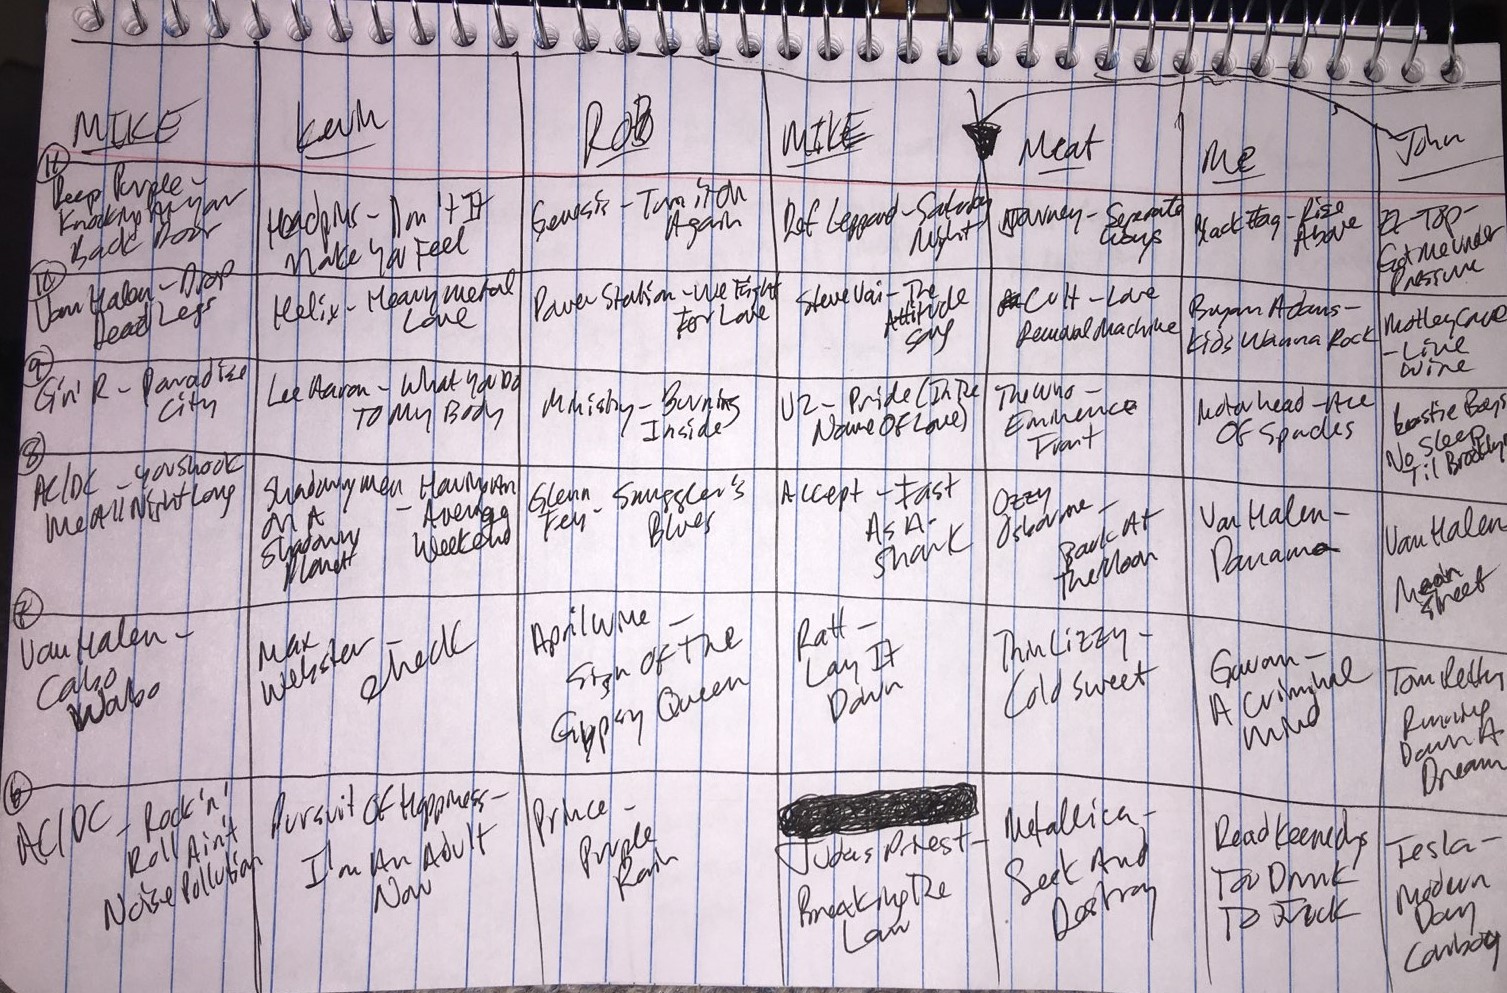 MIKE
Kevin
ROB
MIKE
Meat
Me
John
11
Deep Purple -
Knocking At Your
Back Door
Headpins - Don't It
Make You Feel
Genesis - Turn it On
Again
Def Leppard - Saturday
Night
Journey - Separate
Ways
Black Flag - Rise
Above
ZZ-TOP -
Got Me Under
Pressure
10
Van Halen - Drop
Dead Legs
Helix - Heavy Metal
Love
Power Station - We Fight
For Love
Steve Vai - The
Attitude
Song
Cult - Love
Removal Machine
Bryan Adams -
Kids Wanna Rock
Motley Crue
- Live
Wire
9
G n' R - Paradise
City
Lee Aaron - What You Do
To My Body
Ministry - Burning
Inside
U2 - Pride (In The
Name Of Love)
The Who -
Eminence
Front
Motorhead - Ace
Of Spades
Beastie Boys
No Sleep
Til Brooklyn
8
AC/DC - You Shook
Me All Night Long
Shadowy Men - Having An
On A - Average
Shadowy Weekend
Planet
Glenn - Smuggler's
Frey - Blues
Accept - Fast
As A
Shark
Ozzy
Osbourne -
Bark At
The Moon
Van Halen -
Panama
Van Halen
Mean
Street
7
Van Halen -
Cabo
Wabo
Max
Webster - Check
April Wine -
Sign Of The
Gypsy Queen
Ratt -
Lay It
Down
Thin Lizzy -
Cold Sweat
Gowan -
A Criminal
Mind
Tom Petty
Running
Down A
Dream
6
AC/DC - Rock 'n'
Roll Ain't
Noise Pollution
Pursuit Of Happiness -
I'm An Adult
Now
Prince -
Purple
Rain
Judas Priest -
Breaking The
Law
Metallica -
Seek And
Destroy
Dead Kennedys
Too Drunk
To Fuck
Tesla -
Modern
Day
Cowboy